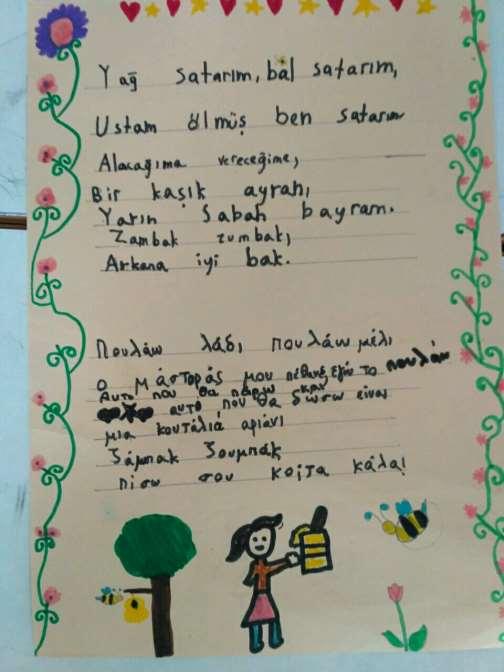 Yağ satarım, bal satarım,
Ustam ölmüş ben satarım
Alacağıma vereceğime,
Bir kaşık ayranı,
Yarın Sabah bayram.
Zambak zumbak,
Arkana iyi bak.
Πουλάω λάδι, πουλάω μέλι
ο μάστοράς μου πέθανε, εγώ το πουλάω
Αυτό που θα πάρω και
αυτό που θα δώσω είναι
μια κουταλιά αριάνι
Ζάμπακ Ζουμπάκ
πίσω σου κοίτα κάλα!